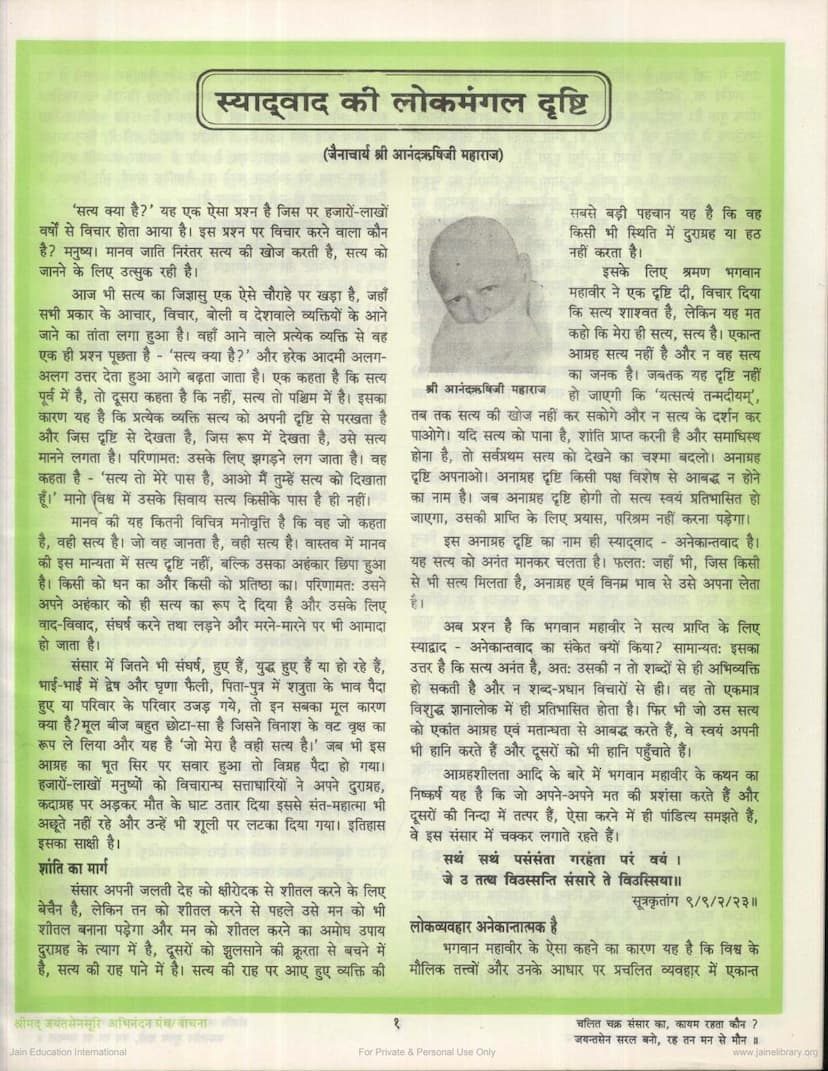 स्याद्‌वाद की लोकमंगल दृष्टि
(जैनाचार्य श्री आनंदऋषिजी महाराज)
‘सत्य क्या है?’ यह एक ऐसा प्रश्न है जिस पर हजारों-लाखों
वर्षों से विचार होता आया है। इस प्रश्न पर विचार करने वाला कौन
है? मनुष्य। मानव जाति निरंतर सत्य की खोज करती है, सत्य को
जानने के लिए उत्सुक रही है।
आज भी सत्य का जिज्ञासु एक ऐसे चौराहे पर खड़ा है, जहाँ
सभी प्रकार के आचार, विचार, बोली व देशवाले व्यक्तियों के आने
जाने का तांता लगा हुआ है। वहाँ आने वाले प्रत्येक व्यक्ति से वह
एक ही प्रश्न पूछता है - ‘सत्य क्या है?’ और हरेक आदमी अलग-
अलग उत्तर देता हुआ आगे बढ़ता जाता है। एक कहता है कि सत्य
पूर्व में है, तो दूसरा कहता है कि नहीं, सत्य तो पश्चिम में है। इसका
कारण यह है कि प्रत्येक व्यक्ति सत्य को अपनी दृष्टि से परखता है
और जिस दृष्टि से देखता है, जिस रूप में देखता है, उसे सत्य
मानने लगता है। परिणामतः उसके लिए झगड़ने लग जाता है। वह
कहता है - ‘सत्य तो मेरे पास है, आओ मैं तुम्हें सत्य को दिखाता
हूँ।’ मानो विश्व में उसके सिवाय सत्य किसीके पास है ही नहीं।
मानव की यह कितनी विचित्र मनोवृत्ति है कि वह जो कहता
है, वही सत्य है। जो वह जानता है, वही सत्य है। वास्तव में मानव
की इस मान्यता में सत्य दृष्टि नहीं, बल्कि उसका अहंकार छिपा हुआ
है। किसी को धन का और किसी को प्रतिष्ठा का। परिणामतः उसने
अपने अहंकार को ही सत्य का रूप दे दिया है और उसके लिए
वाद-विवाद, संघर्ष करने तथा लड़ने और मरने-मारने पर भी आमादा
हो जाता है।
संसार में जितने भी संघर्ष, हुए हैं, युद्ध हुए हैं या हो रहे हैं,
भाई-भाई में द्वेष और घृणा फैली, पिता-पुत्र में शत्रुता के भाव पैदा
हुए या परिवार के परिवार उजड़ गये, तो इन सबका मूल कारण
क्या है?मूल बीज बहुत छोटा-सा है जिसने विनाश के वट वृक्ष का
रूप ले लिया और यह है ‘जो मेरा है वही सत्य है।’ जब भी इस
आग्रह का भूत सिर पर सवार हुआ तो विग्रह पैदा हो गया।
हजारों-लाखों मनुष्यों को विचारान्ध सत्ताधारियों ने अपने दुराग्रह,
कदाग्रह पर अड़कर मौत के घाट उतार दिया इससे संत-महात्मा भी
अछूते नहीं रहे और उन्हें भी शूली पर लटका दिया गया। इतिहास
इसका साक्षी है।
शांति का मार्ग
संसार अपनी जलती देह को क्षीरोदक से शीतल करने के लिए
बेचैन है, लेकिन तन को शीतल करने से पहले उसे मन को भी
शीतल बनाना पड़ेगा और मन को शीतल करने का अमोघ उपाय
दुराग्रह के त्याग में है, दूसरों को झुलसाने की क्रूरता से बचने में
है, सत्य की राह पाने में है। सत्य की राह पर आए हुए व्यक्ति की
श्री आनंदऋषिजी महाराज
सबसे बड़ी पहचान यह है कि वह
किसी भी स्थिति में दुराग्रह या हठ
नहीं करता है।
इसके लिए श्रमण भगवान
महावीर ने एक दृष्टि दी, विचार दिया
कि सत्य शाश्वत है, लेकिन यह मत
कहो कि मेरा ही सत्य, सत्य है। एकान्त
आग्रह सत्य नहीं है और न वह सत्य
का जनक है। जबतक यह दृष्टि नहीं
हो जाएगी कि ‘यत्सत्यं तन्मदीयम्’,
तब तक सत्य की खोज नहीं कर सकोगे और न सत्य के दर्शन कर
पाओगे। यदि सत्य को पाना है, शांति प्राप्त करनी है और समाधिस्थ
होना है, तो सर्वप्रथम सत्य को देखने का चश्मा बदलो। अनाग्रह
दृष्टि अपनाओ। अनाग्रह दृष्टि किसी पक्ष विशेष से आबद्ध न होने
का नाम है। जब अनाग्रह दृष्टि होगी तो सत्य स्वयं प्रतिभासित हो
जाएगा, उसकी प्राप्ति के लिए प्रयास, परिश्रम नहीं करना पड़ेगा।
इस अनाग्रह दृष्टि का नाम ही स्याद्‌वाद - अनेकान्तवाद है।
यह सत्य को अनंत मानकर चलता है। फलतः जहाँ भी, जिस किसी
से भी सत्य मिलता है, अनाग्रह एवं विनम्र भाव से उसे अपना लेता
है।
अब प्रश्न है कि भगवान महावीर ने सत्य प्राप्ति के लिए
स्याद्वाद - अनेकान्तवाद का संकेत क्यों किया? सामान्यतः इसका
उत्तर है कि सत्य अनंत है, अतः उसकी न तो शब्दों से ही अभिव्यक्ति
हो सकती है और न शब्द-प्रधान विचारों से ही। वह तो एकमात्र
विशुद्ध ज्ञानालोक में ही प्रतिभासित होता है। फिर भी जो उस सत्य
को एकांत आग्रह एवं मतान्धता से आबद्ध करते हैं, वे स्वयं अपनी
भी हानि करते हैं और दूसरों को भी हानि पहुँचाते हैं।
आग्रहशीलता आदि के बारे में भगवान महावीर के कथन का
निष्कर्ष यह है कि जो अपने-अपने मत की प्रशंसा करते हैं और
दूसरों की निन्दा में तत्पर हैं, ऐसा करने में ही पांडित्य समझते हैं,
वे इस संसार में चक्कर लगाते रहते हैं।
सथं सथं पसंसंता गरहंता परं वयं ।
जे उ तत्थ विउस्सन्ति संसारे ते विउस्सिया॥
सूत्रकृतांग १/१/२/२३॥
लोकव्यवहार अनेकान्तात्मक है
भगवान महावीर के ऐसा कहने का कारण यह है कि विश्व के
मौलिक तत्त्वों और उनके आधार पर प्रचलित व्यवहार में एकान्त
श्रीमद् जयंतसेनसूरि अभिनंदन ग्रंथ/वाचना
१
चलित चक्र संसार का, कायम रहता कौन ?
जयन्तसेन सरल बनो, रह तन मन से मौन ॥
Jain Education International
For Private & Personal Use Only
www.jainelibrary.org